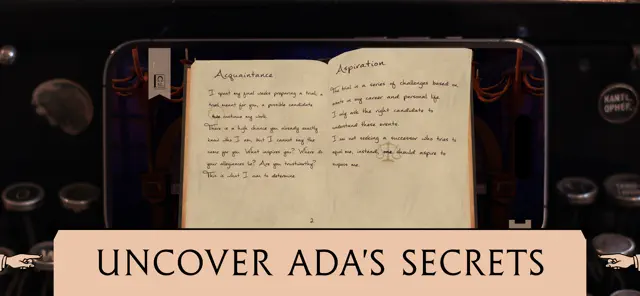 Acquaintance
I spent my final weeks preparing a trial, a
trial meant for you, a possible candidate
to continue my work.
There is a high chance you already exactly
know who I am, but I cannot say the
same for you. What inspires you? Where do
your allegiances lie? Are you trustworthy?
This is what I aim to determine.
2
Aspiration
The trial is a series of challenges based on
events in my career and personal life.
I only ask the right candidate to
understand these events.
I am not seeking a successor who tries to
equal me, instead, one should aspire to
surpass me.
UNCOVER ADA'S SECRETS